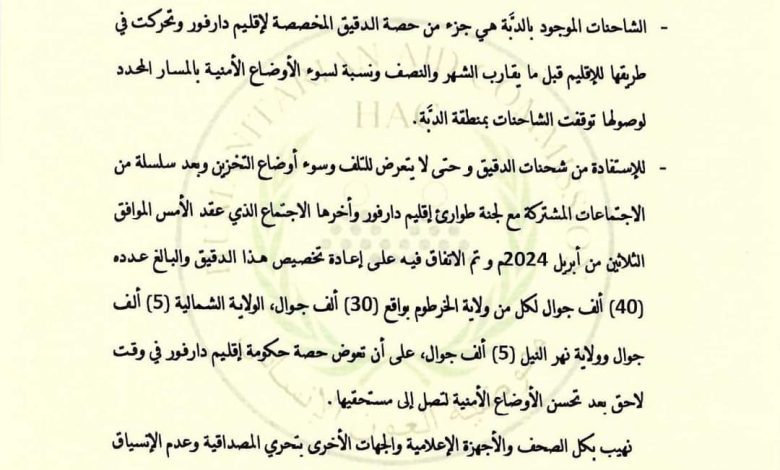 - الشاحنات الموجود بالدبَّة هي جزء من حصة الدقيق المخصصة لإقليم دارفور وتحركت في
طريقها للإقليم قبل ما يقارب الشهر والنصف ونسبة لسوء الأوضاع الأمنية بالمسار المحدد
لوصولها توقفت الشاحنات بمنطقة الدبَّة .
- للإستفادة من شحنات الدقيق و حتى لا يتعرض للتلف وسوء أوضاع التخزين وبعد سلسلة من
الاجتماعات المشتركة مع لجنة طوارئ إقليم دارفور وأخرها الاجتماع الذي عقد الأمس الموافق
الثلاثين من أبريل 2024م و تم الاتفاق فيه على إعادة تخصيص هذا الدقيق والبالغ عدده
(40) ألف جوال لكل من ولاية الخرطوم بواقع (30) ألف جوال، الولاية الشمالية (5) ألف
جوال وولاية نهر النيل (5) ألف جوال، على أن تعوض حصة حكومة إقليم دارفور في وقت
لاحق بعد تحسن الأوضاع الأمنية لتصل إلى مستحقيها .
نهيب بكل الصحف والأجهزة الإعلامية والجهات الأخرى بتحري المصداقية وعدم الإنسياق
HUMANITARIAN AID COMMISSION
HAC